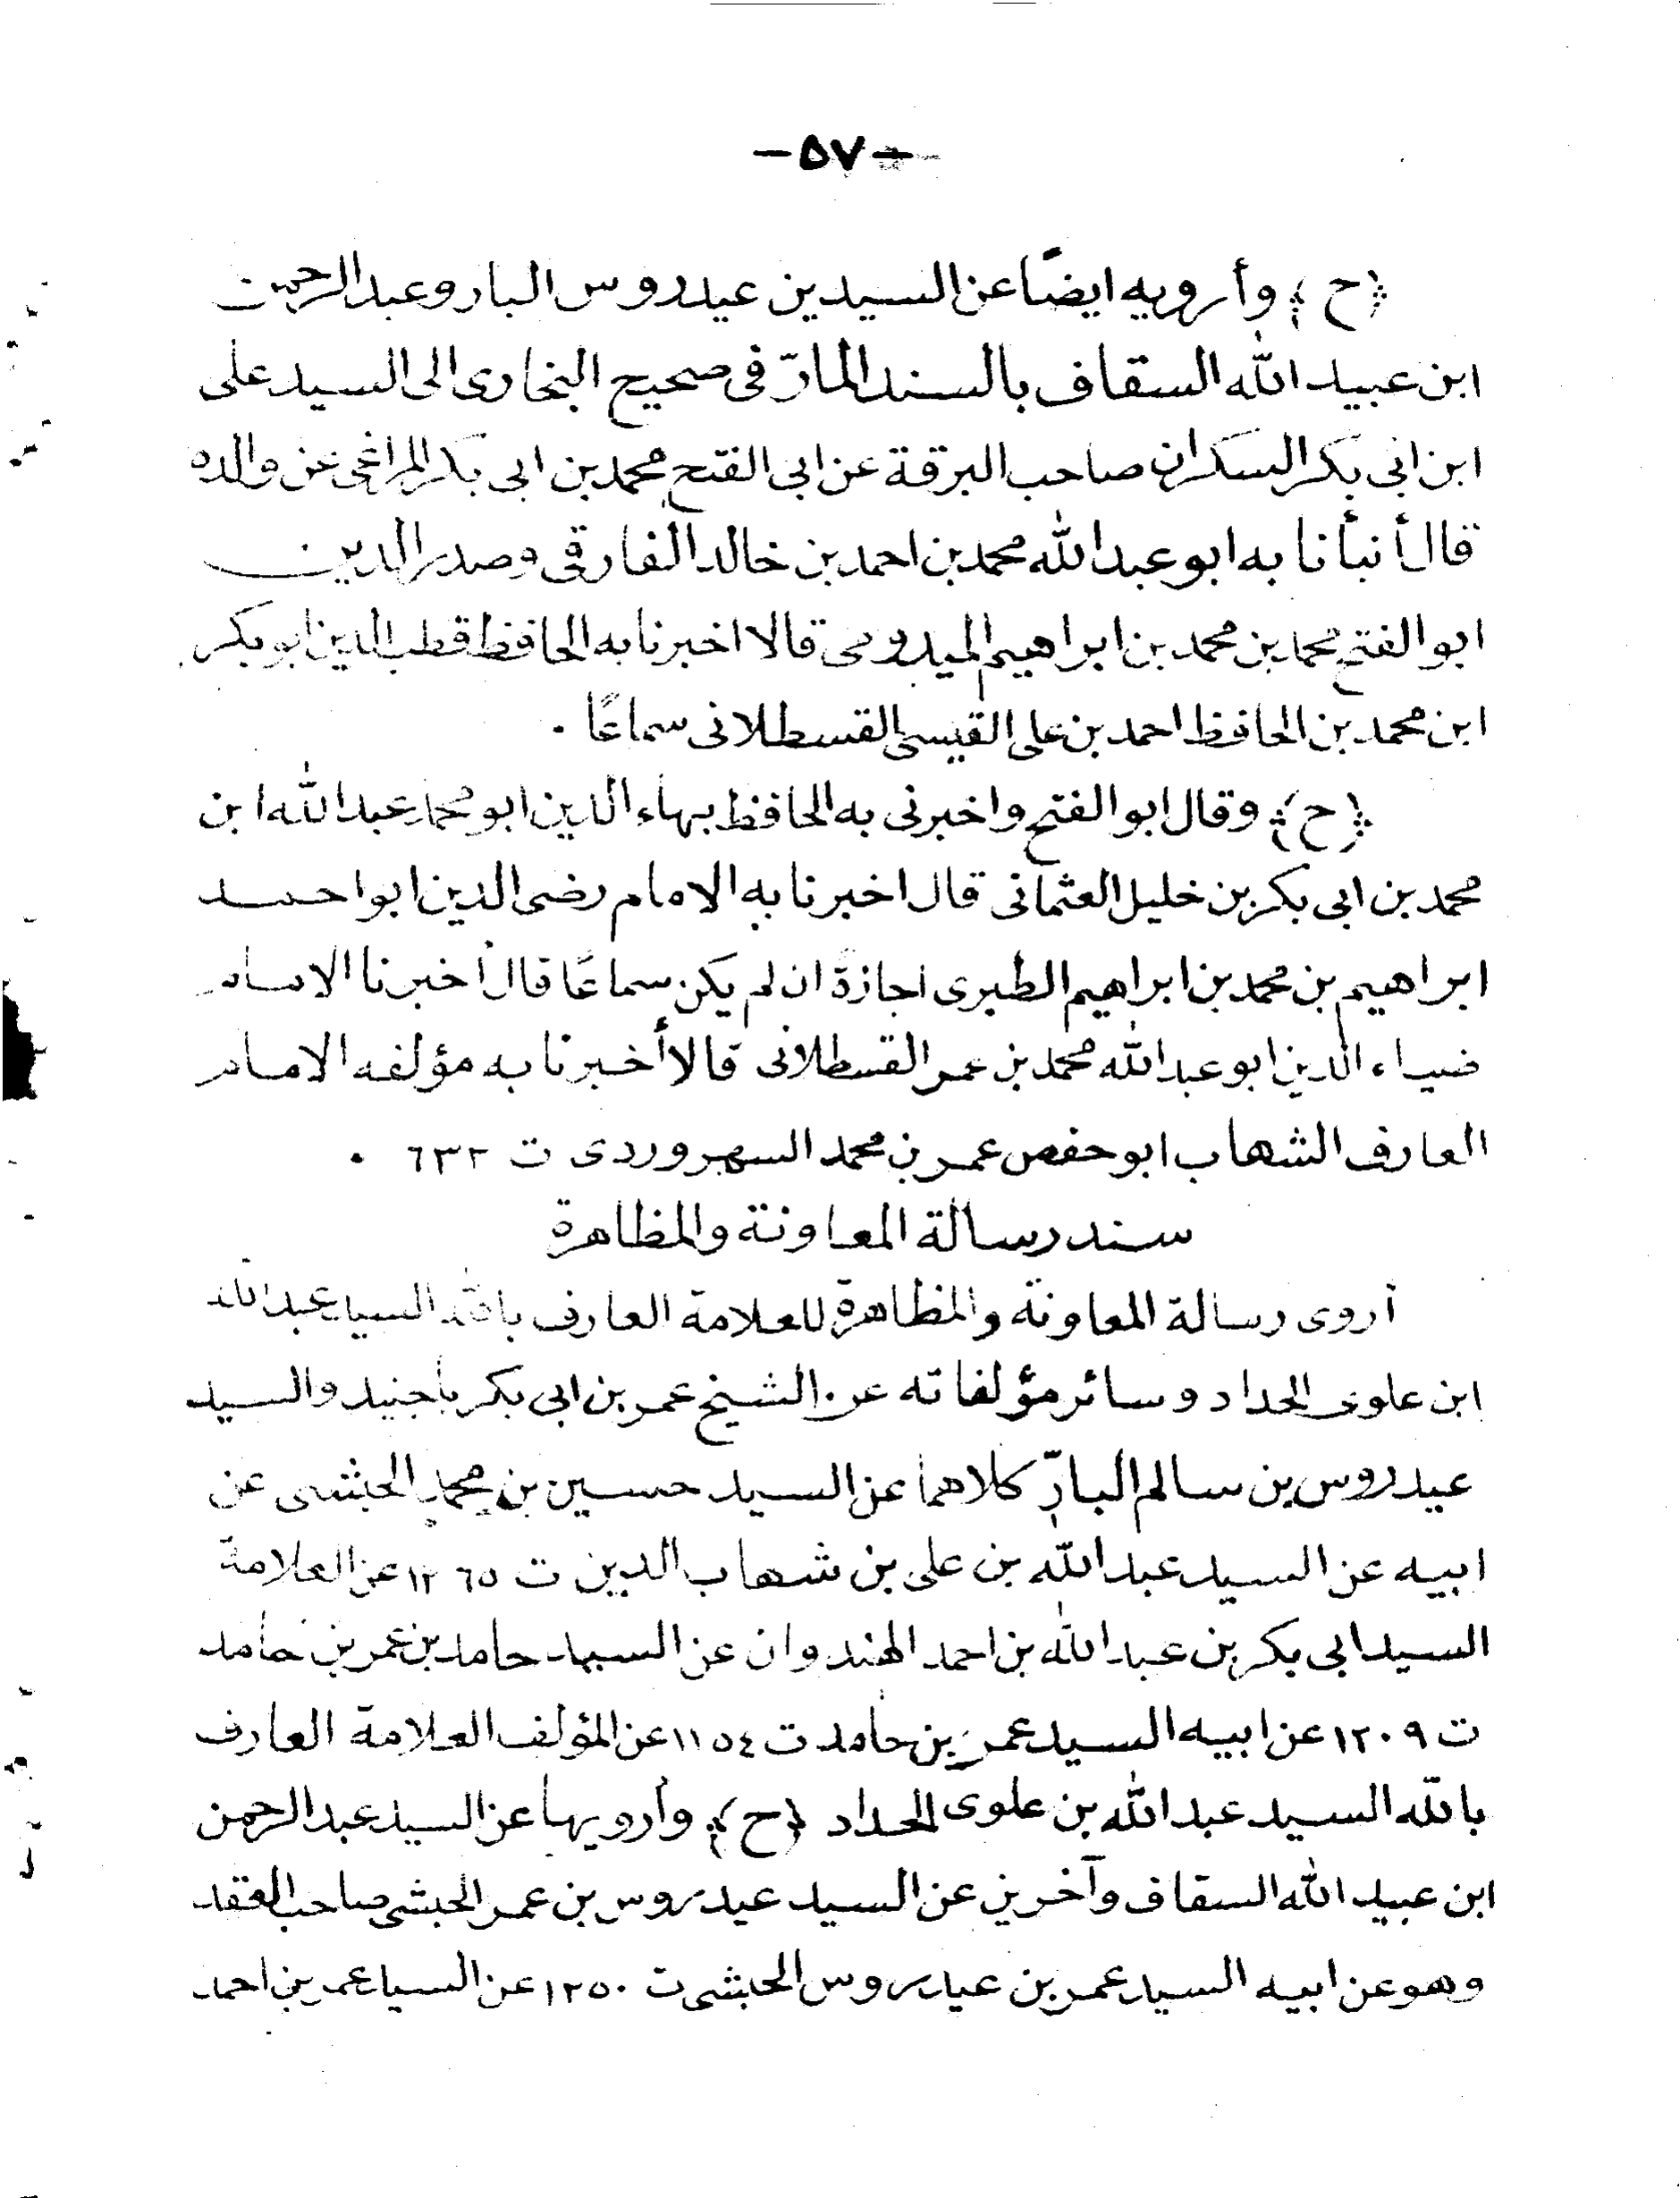 -٥٧-
﴿ح﴾ وأرويه ايضًا عن السيدين عيدروس البار وعبدالرحمن
ابن عبيد الله السقاف بالسند المارّ فى صحيح البخارى الى السيد على
ابن ابى بكر السكران صاحب البرقة عن ابى الفتح محمد بن ابى بكر المراغى عن والده
قال أنبأنا به ابو عبد الله محمد بن احمد بن خالد الفارقى وصدر الدين
ابو الفتح محمد بن محمد بن ابراهيم الميدومى قالا اخبرنا به الحافظ قطب الدين ابو بكر
ابن محمد بن الحافظ احمد بن على القيسى القسطلانى سماعًا ٠
﴿ح﴾ وقال ابو الفتح واخبرنى به الحافظ بهاء الدين ابو محمد عبد الله ابن
محمد بن ابى بكر بن خليل العثمانى قال اخبرنا به الامام رضى الدين ابو احمد
ابراهيم بن محمد بن ابراهيم الطبرى اجازة ان لم يكن سماعًا قال أخبرنا الامام
ضياء الدين ابو عبد الله محمد بن عمر القسطلانى قالا أخبرنا به مؤلفه الامام
العارف الشهاب ابو حفص عمر بن محمد السهروردى ت ٦٣٢ ٠
سند رسالة المعاونة والمظاهرة
أروى رسالة المعاونة والمظاهرة للعلامة العارف بالله السيد عبد الله
ابن علوى الحداد وسائر مؤلفاته عن الشيخ عمر بن ابى بكر باجنيد والسيد
عيدروس بن سالم البارّ كلاهما عن السيد حسين بن محمد الحبشى عن
ابيه عن السيد عبد الله بن على بن شهاب الدين ت ١٢٦٥ عن العلامة
السيد ابى بكر بن عبد الله بن احمد الهندوان عن السيد حامد بن عمر بن حامد
ت ١٢٠٩ عن ابيه السيد عمر بن حامد ت ١١٥٤ عن المؤلف العلامة العارف
بالله السيد عبد الله بن علوى الحداد ﴿ح﴾ وأرويها عن السيد عبد الرحمن
ابن عبيد الله السقاف وآخرين عن السيد عيدروس بن عمر الحبشى صاحب العقد
وهو عن ابيه السيد عمر بن عيدروس الحبشى ت ١٢٥٠ عن السيد عمر بن احمد